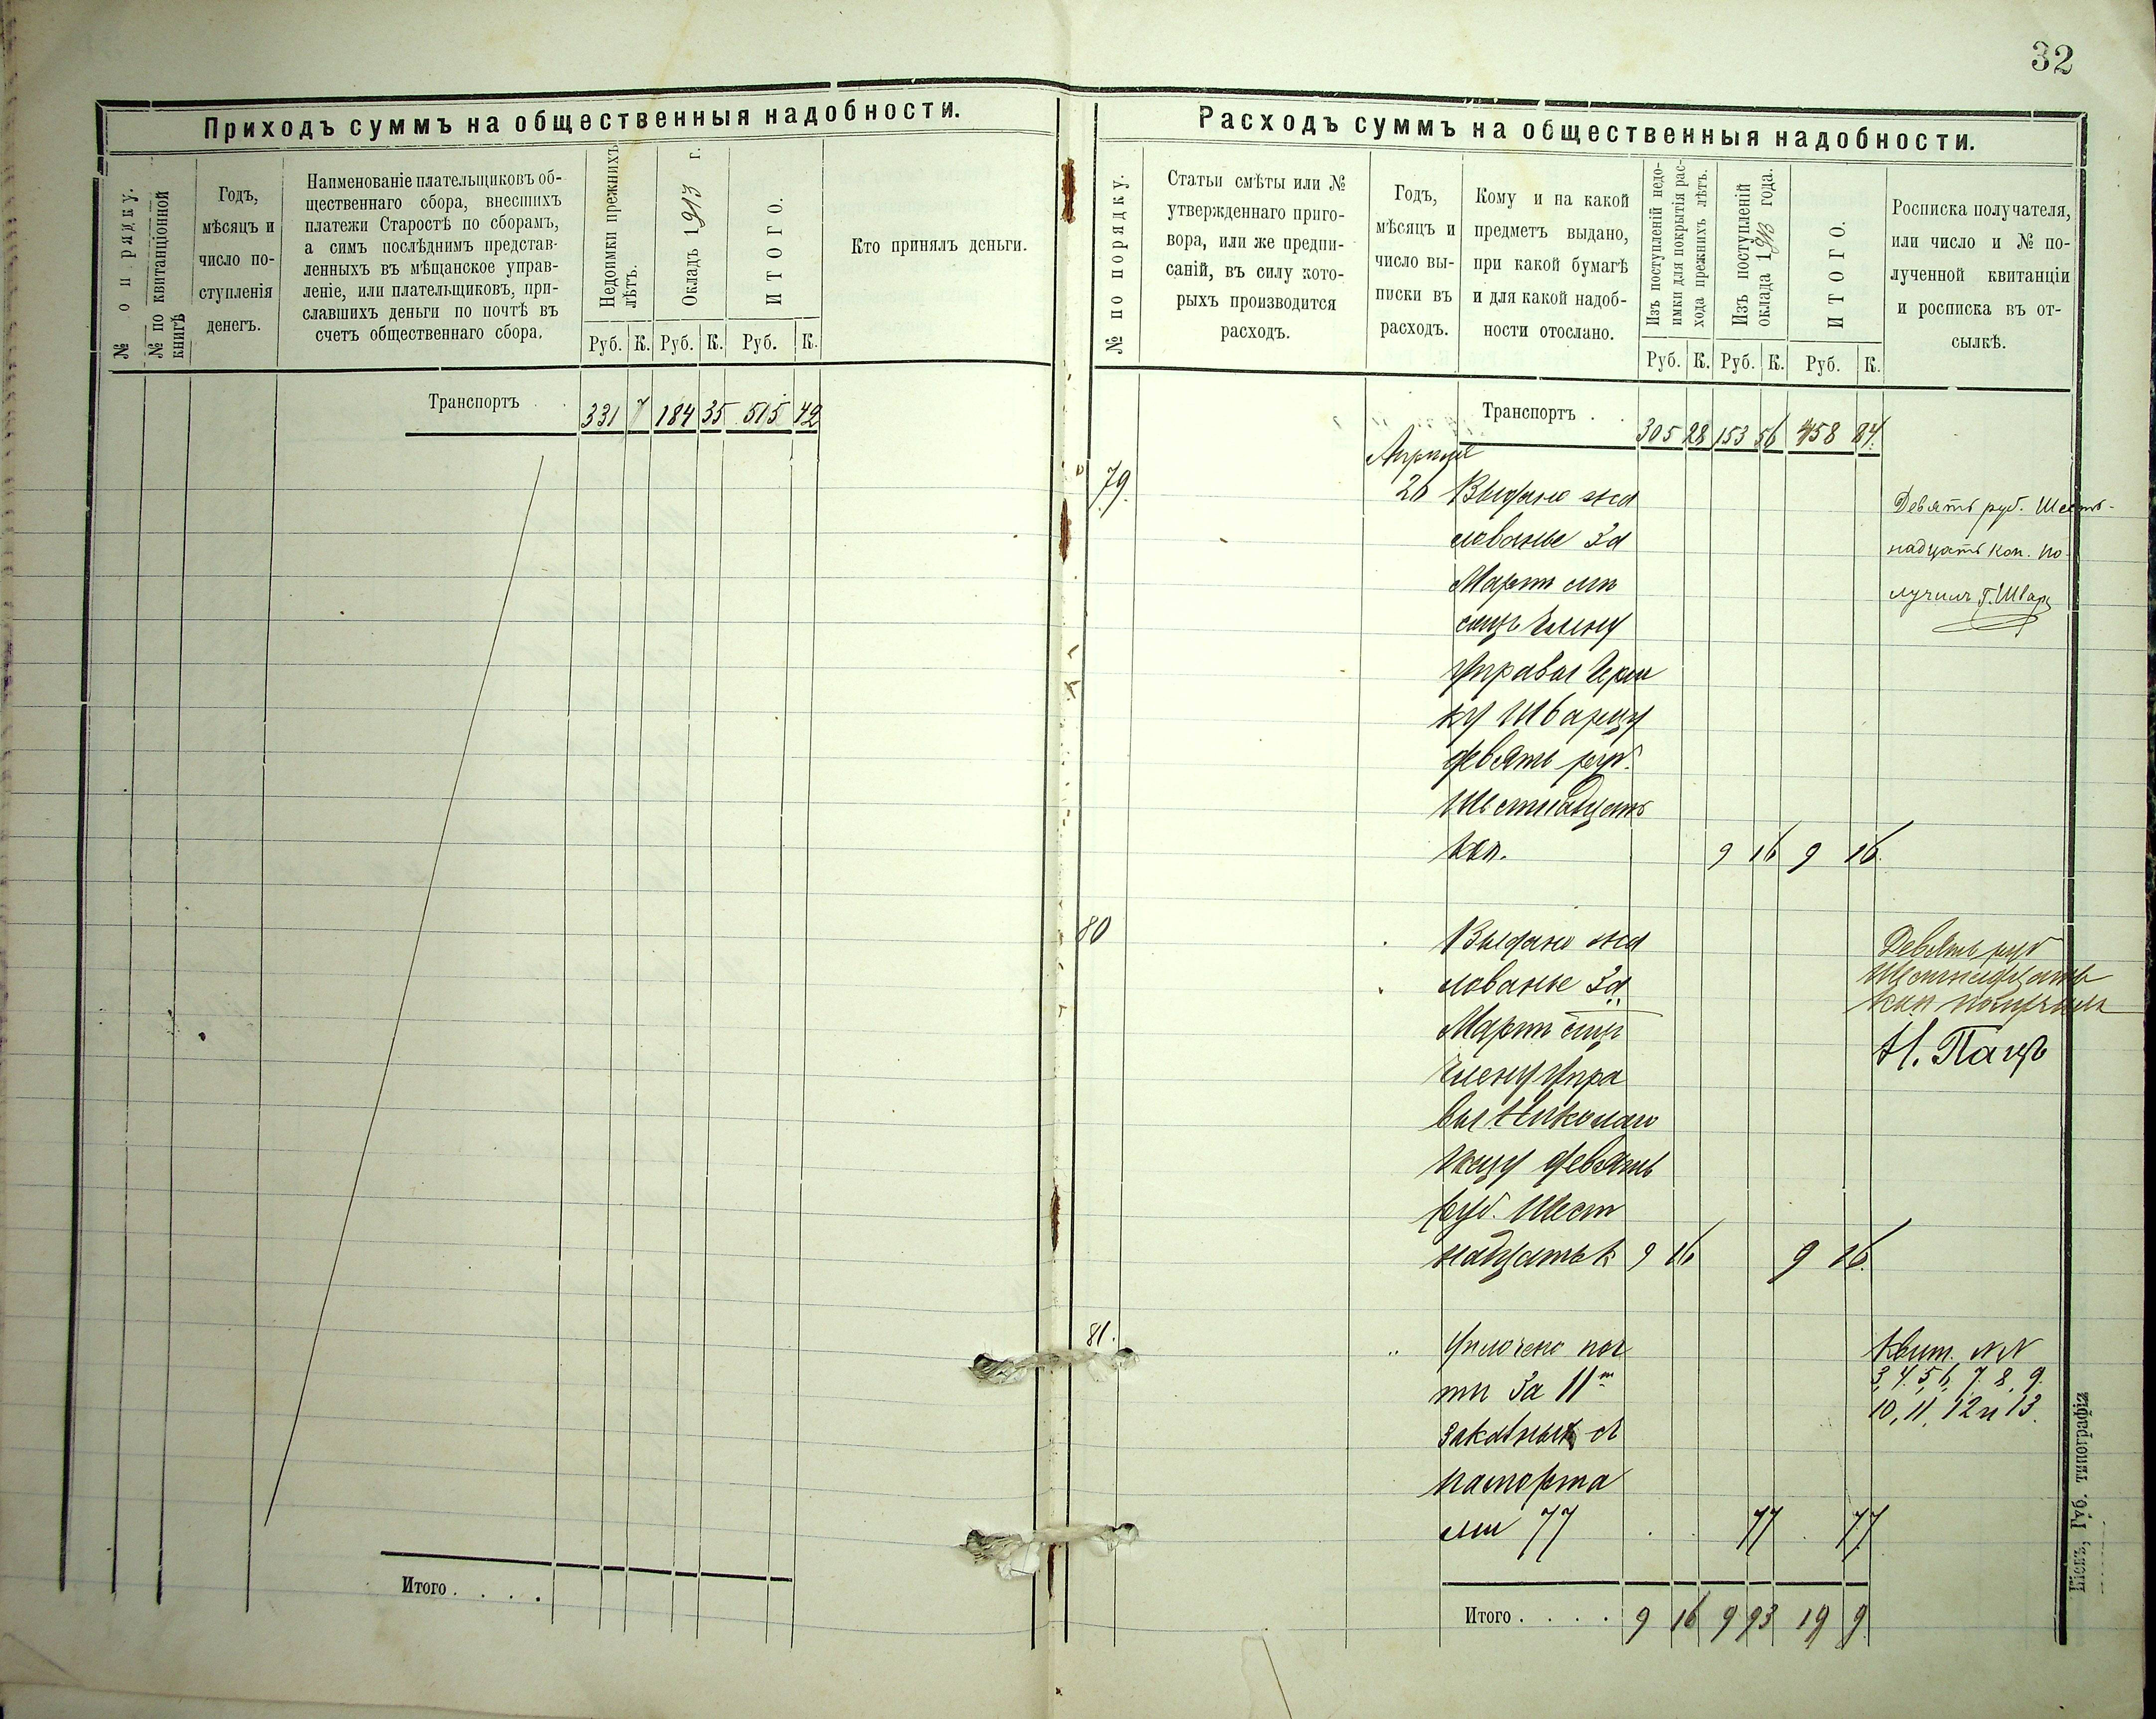 32
Приходъ суммъ на общественныя надобности.
№ по порядку.
№ по квитанціонной
книгѣ
Годъ,
мѣсяцъ и
число по-
ступленія
денегъ.
Наименованіе плательщиковъ об-
щественнаго сбора, внесшихъ
платежи Старостѣ по сборамъ,
а симъ послѣднимъ представ-
ленныхъ въ мѣщанское управ-
леніе, или плательщиковъ, при-
славшихъ деньги по почтѣ въ
счетъ общественнаго сбора.
Недоимки прежнихъ
лѣтъ.
Окладъ 1913 г.
ИТОГО.
Руб. К. Руб. К. Руб. К.
Кто принялъ деньги.
Транспортъ . . 331 7 184 35 515 42
Итого . . . .
Расходъ суммъ на общественныя надобности.
№ по порядку.
Статьи смѣты или №
утвержденнаго приго-
вора, или же предпи-
саній, въ силу кото-
рыхъ производится
расходъ.
Годъ,
мѣсяцъ и
число вы-
писки въ
расходъ.
Кому и на какой
предметъ выдано,
при какой бумагѣ
и для какой надоб-
ности отослано.
Изъ поступленій недо-
имки для покрытія рас-
хода прежнихъ лѣтъ.
Изъ поступленій
оклада 1913 года.
ИТОГО.
Руб. К. Руб. К. Руб. К.
Росписка получателя,
или число и № по-
лученной квитанціи
и росписка въ от-
сылкѣ.
Транспортъ . . 305 28 153 56 458 84.
Апрѣля
79. 26 Выдано жа
лованье за
Мартъ мѣ
сяцъ Члену
Управы Герш
ку Шварцу
девять руб.
Шестнадцать
коп. 9 16 9 16.
Девять руб. Шест-
надцать коп. по-
лучилъ Г. Шварц
80 Выдано жа
лованье за
Мартъ
Члену Упра
вы Николаю
девять
руб. Шест
надцать к 9 16 9 16.
Девять руб
Шестнадцать
коп получилъ
Н. Пацъ
81. " Уплочено поч
тѣ за 11т
заказныхъ съ
паспорта
ми 77 77 77
Квит. №№
3, 4. 5, 6, 7. 8, 9.
10, 11, 12 и 13.
Итого . . . . 9 16 9 93 19 9
Губ. типографія